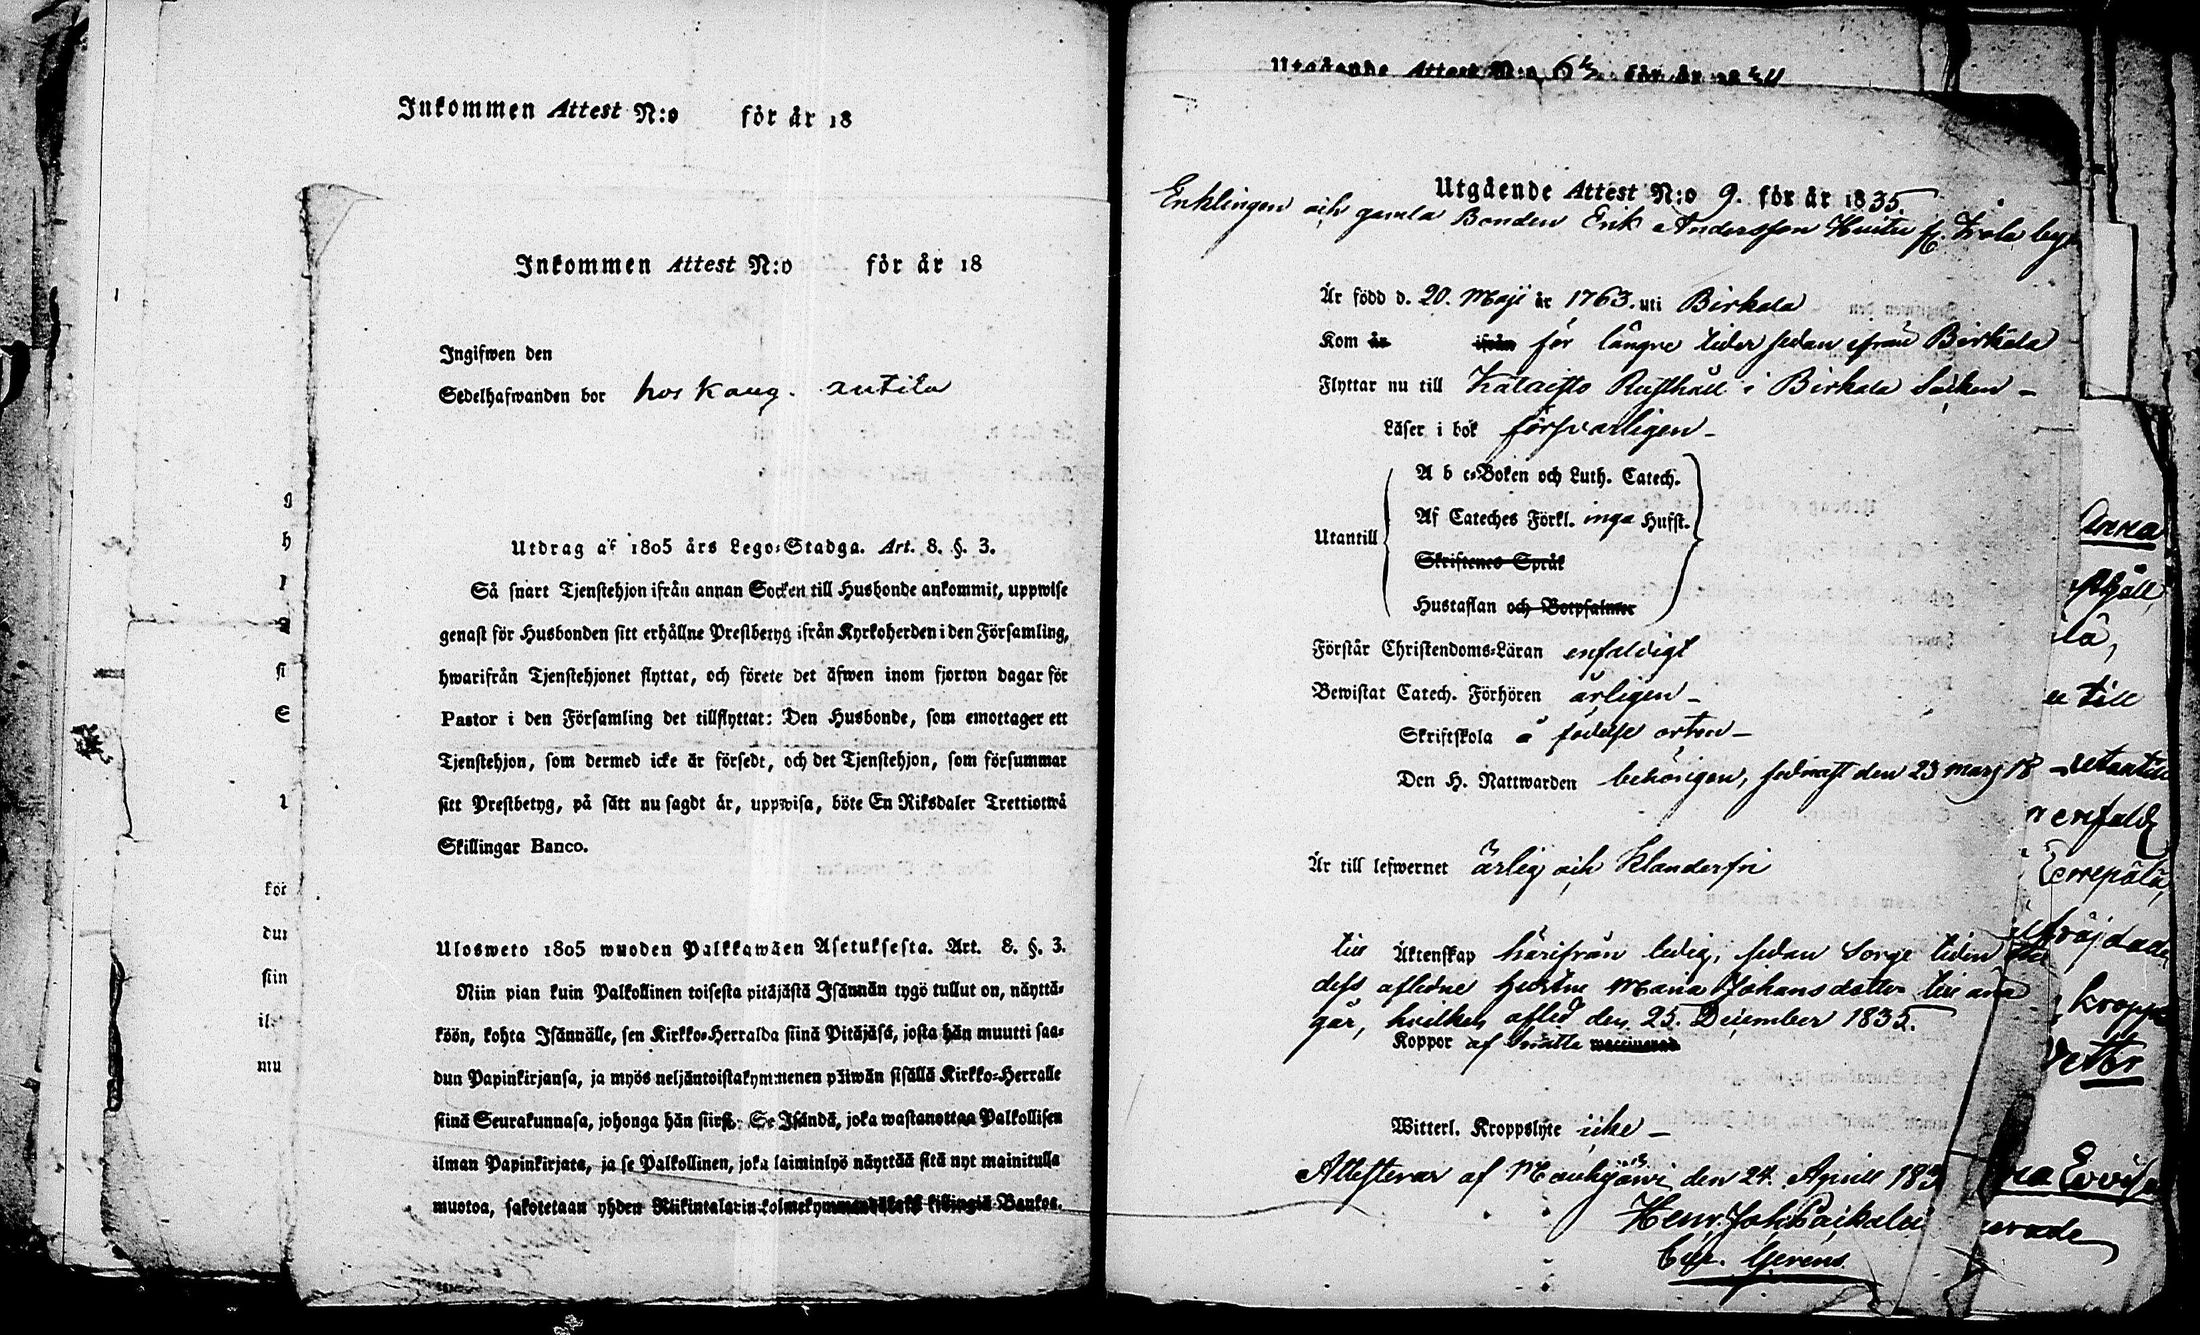 Inkommen Attest N:o för år 18
Inkommen Attest N:o för år 18
Ingifwen den
Sedelhafwanden bor hos Kang. Antila
Utdrag af 1805 års Lego-Stadga. Art. 8. §. 3.
Så snart Tjenstehjon ifrån annan Socken till Husbonde ankommit, uppwise
genast för Husbonden sitt erhållne Prestbetyg ifrån Kyrkoherden i den Församling,
hwarifrån Tjenstehjonet flyttat, och förete det äfwen inom fjorton dagar för
Pastor i den Församling det tillflyttat: Den Husbonde, som emottager ett
Tjenstehjon, som dermed icke är försedt, och det Tjenstehjon, som försummar
sitt Prestbetyg, på sätt nu sagdt är, uppwisa, böte En Riksdaler Trettiotwå
Skillingar Banco.
Ulosweto 1805 wuoden Palkkawäen Asetuksesta. Art. 8. §. 3.
Niin pian kuin Palkollinen toisesta pitäjästä Isännän tygö tullut on, näyttä-
köön, kohta Isännälle, sen Kirkko-Herralda siinä Pitäjäsä, josta hän muutti saa-
dun Papinkirjansa, ja myös neljäntoistakymmenen päiwän sisällä Kirkko-Herralle
siinä Seurakunnasa, johonga hän siirst. Se Isändä, joka wastanottaa Palkollisen
ilman Papinkirjata, ja se Palkollinen, joka laiminlyö näyttää sitä nyt mainitulla
muotoa, sakotetaan yhden Riikintalarin kolmekymmendäkaksi killingiä Bankos.
Utgående Attest N:o för år
Utgående Attest N:o 9. för år 1835
Enklingen och gamla Bonden Erik Andersson
Är född d. 20. Maji år 1763. uti Birkala
Kom år ifrån för långre tider sedan ifrån Birkala
Flyttar nu till Rusthåll i Birkala Socken –
Läser i bok försvarligen –
Utantill
A b c-Boken och Luth. Catech.
Af Cateches Förkl. inga Hufst.
Skriftenes Språk
Hustaflan och Botpsalmer
Förstår Christendoms-Läran enfaldigt
Bewistat Catech. Förhören årligen –
Skriftskola å födelse orten –
Den H. Nattwarden behörigen, sednast den 23 Mars 18
Är till lefwernet ärlig och klanderfri
till Äktenskap härifrån ledig, sedan Sorge tiden
dess aflidne hustru Maria Johansdotter till ända
går, hvilken afled den 25. December 1835.
Koppor af Smitta waccinerad
Witterl. Kroppslyte icke –
Attesterar af Mouhijärvi den 24. April 183
Henr. Joh.
Anna
till
Errepälä,
kropps